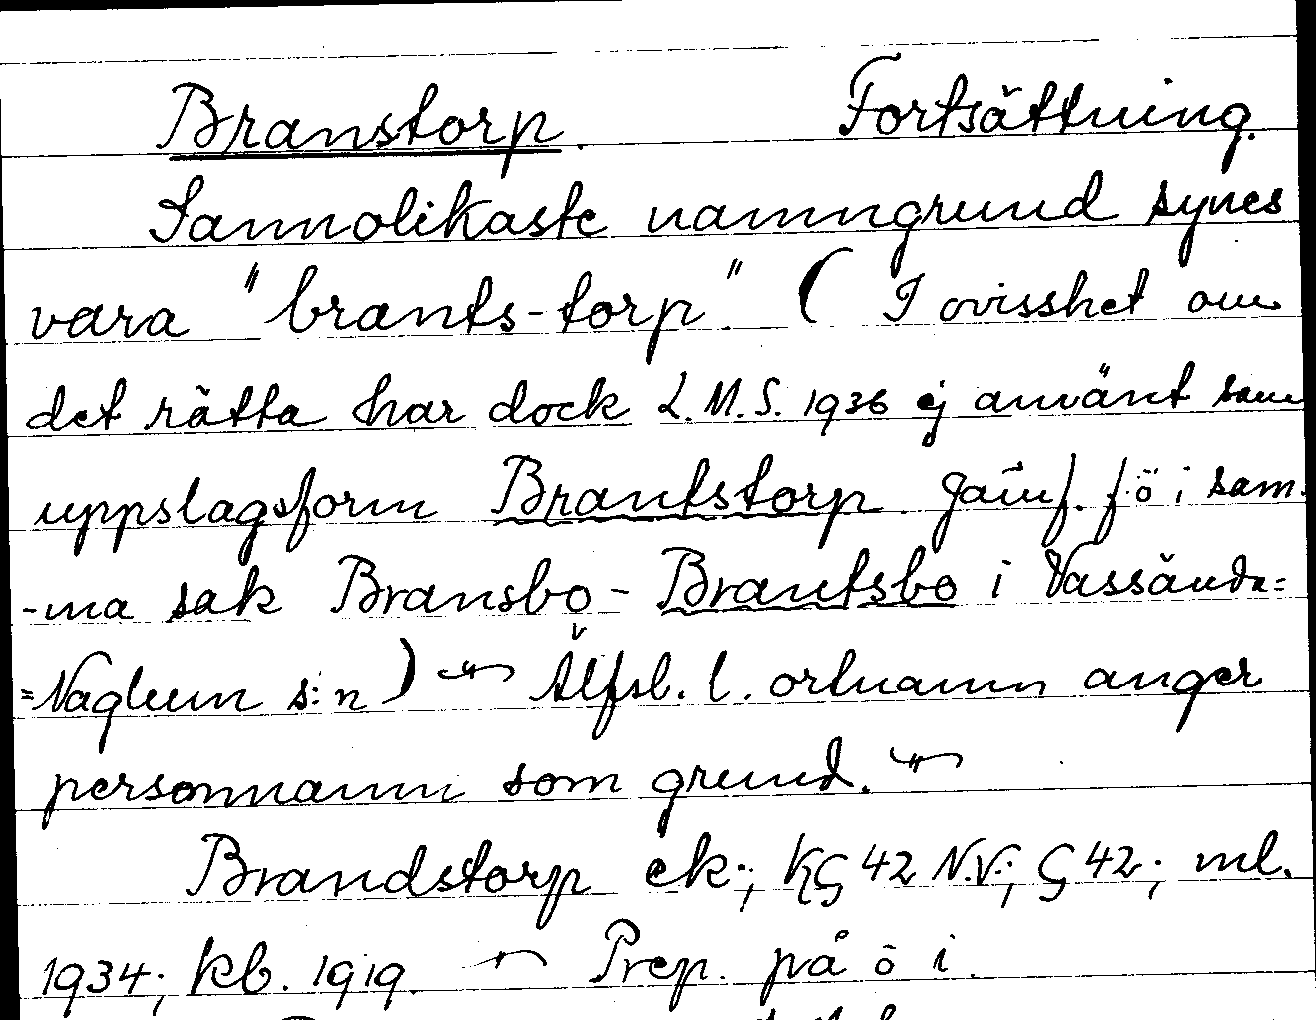 Branstorp. Fortsättning.
Sannolikaste namngrund synes
vara "brants-torp". (I ovisshet om
det rätta har dock L.M.S. 1936 ej använt som
uppslagsform Brantstorp. Jämf. f.ö. i sam-
-ma sak Bransbo - Brantsbo i Vassända=
=Naglum s:n) Älfsb. l. ortnamn anger
personnamn som grund.
Brandstorp ek.; KG 42 N.V.; G 42; ml.
1934; kb. 1919. Prep. på o i.